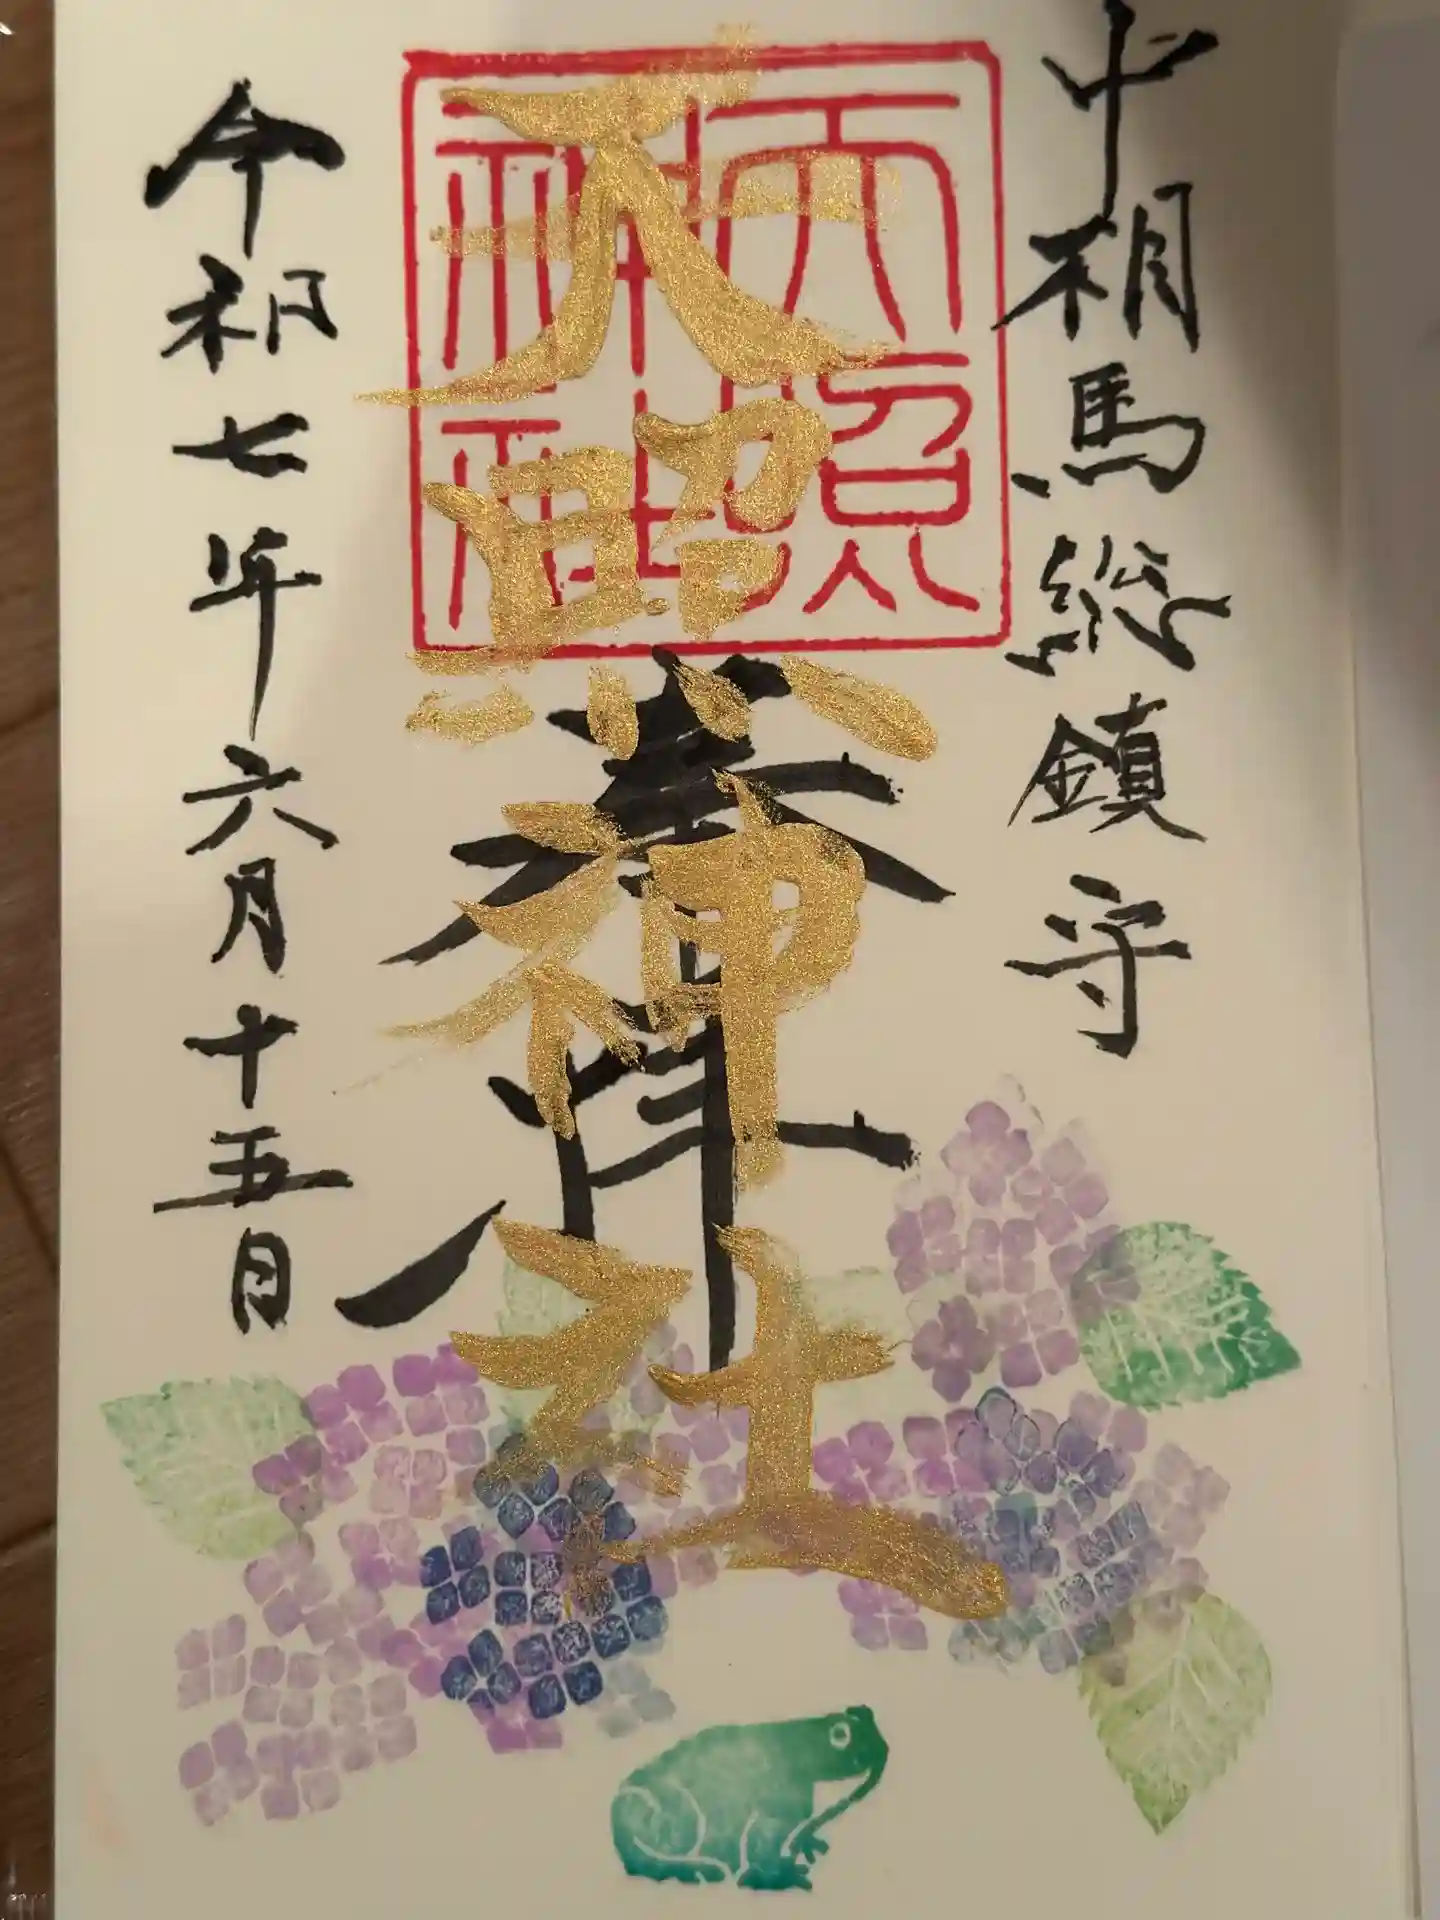 中相馬総鎮守
天照神社
奉拝
天照神社
令和七年六月十五日